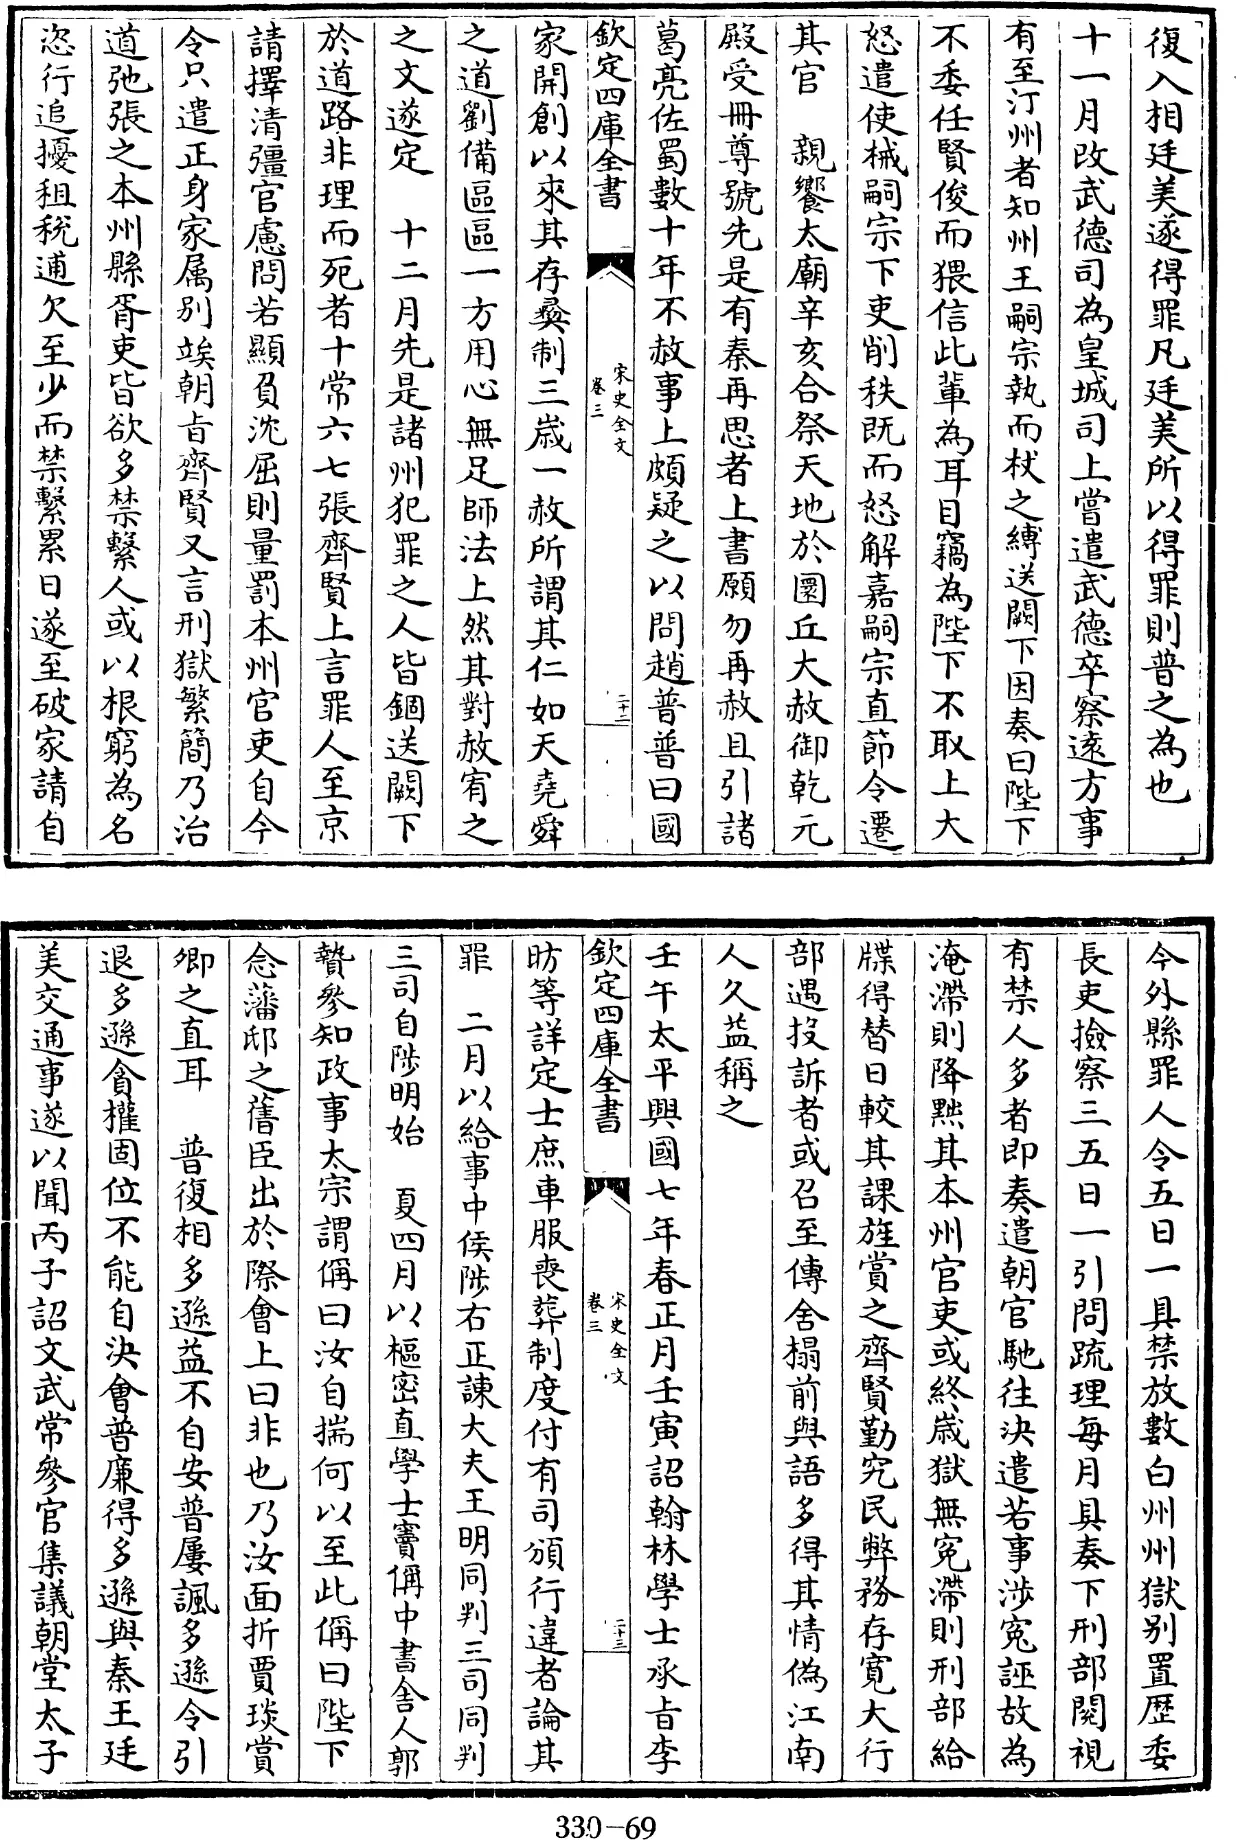 復入相廷美遂得罪凡廷美所以得罪則普之為也
十一月改武德司為皇城司上嘗遣武德卒察遠方事
有至汀州者知州王嗣宗執而杖之縛送闕下因奏曰陛下
不委任賢俊而猥信此輩為耳目竊為陛下不取上大
怒遣使械嗣宗下吏削秩既而怒解嘉嗣宗直節令遷
其官　親饗太廟辛亥合祭天地於圜丘大赦御乾元
殿受冊尊號先是有秦再思者上書願勿再赦且引諸
葛亮佐蜀數十年不赦事上頗疑之以問趙普普曰國
欽定四庫全書
宋史全文
卷三
二十二
家開創以來其存彞制三歲一赦所謂其仁如天堯舜
之道劉備區區一方用心無足師法上然其對赦宥之
之文遂定　十二月先是諸州犯罪之人皆錮送闕下
於道路非理而死者十常六七張齊賢上言罪人至京
請擇清彊官慮問若顯負沈屈則量罰本州官吏自今
令只遣正身家属别竢朝旨齊賢又言刑獄繁簡乃治
道弛張之本州縣胥吏皆欲多禁繫人或以根窮為名
恣行追擾租稅逋欠至少而禁繫累日遂至破家請自
今外縣罪人令五日一具禁放數白州州獄别置歴委
長吏撿察三五日一引問疏理每月具奏下刑部閱視
有禁人多者即奏遣朝官馳往決遣若事涉寃誣故為
淹滯則降黜其本州官吏或終歳獄無寃滯則刑部給
牒得替日較其課旌賞之齊賢勤究民弊務存寛大行
部遇投訴者或召至傳舍榻前與語多得其情偽江南
人久益稱之
壬午太平興國七年春正月壬寅詔翰林學士承旨李
欽定四庫全書
宋史全文
卷三
二十三
昉等詳定士庶車服喪葬制度付有司頒行違者論其
罪　二月以給事中侯陟右正諫大夫王明同判三司同判
三司自陟明始　夏四月以樞密直學士竇偁中書舍人郭
贄參知政事太宗謂偁曰汝自揣何以至此偁曰陛下
念藩邸之舊臣出於際會上曰非也乃汝面折賈琰賞
卿之直耳　普復相多遜益不自安普屢諷多遜令引
退多遜貪權固位不能自決會普廉得多遜與秦王廷
美交通事遂以聞丙子詔文武常參官集議朝堂太子
330-69